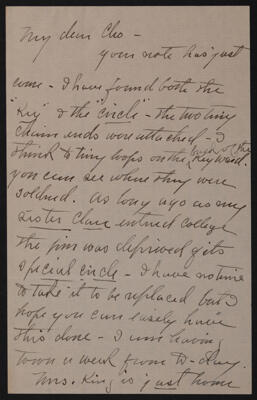 My dear Cleo -
your note has just
come - I have found both the
"Key" & the "circle" - the two tiny
chain ends were attached - I
think to tiny loops on the back of the Key ward.
you can see where they were
soldered. As long ago as my
sister Clare entered college
the pin was deprived of its
special circle - I have no time
to take it to be replaced but I
hope you can easily have
this done - I am leaving
town a week from to-day.
Mrs. King is just home